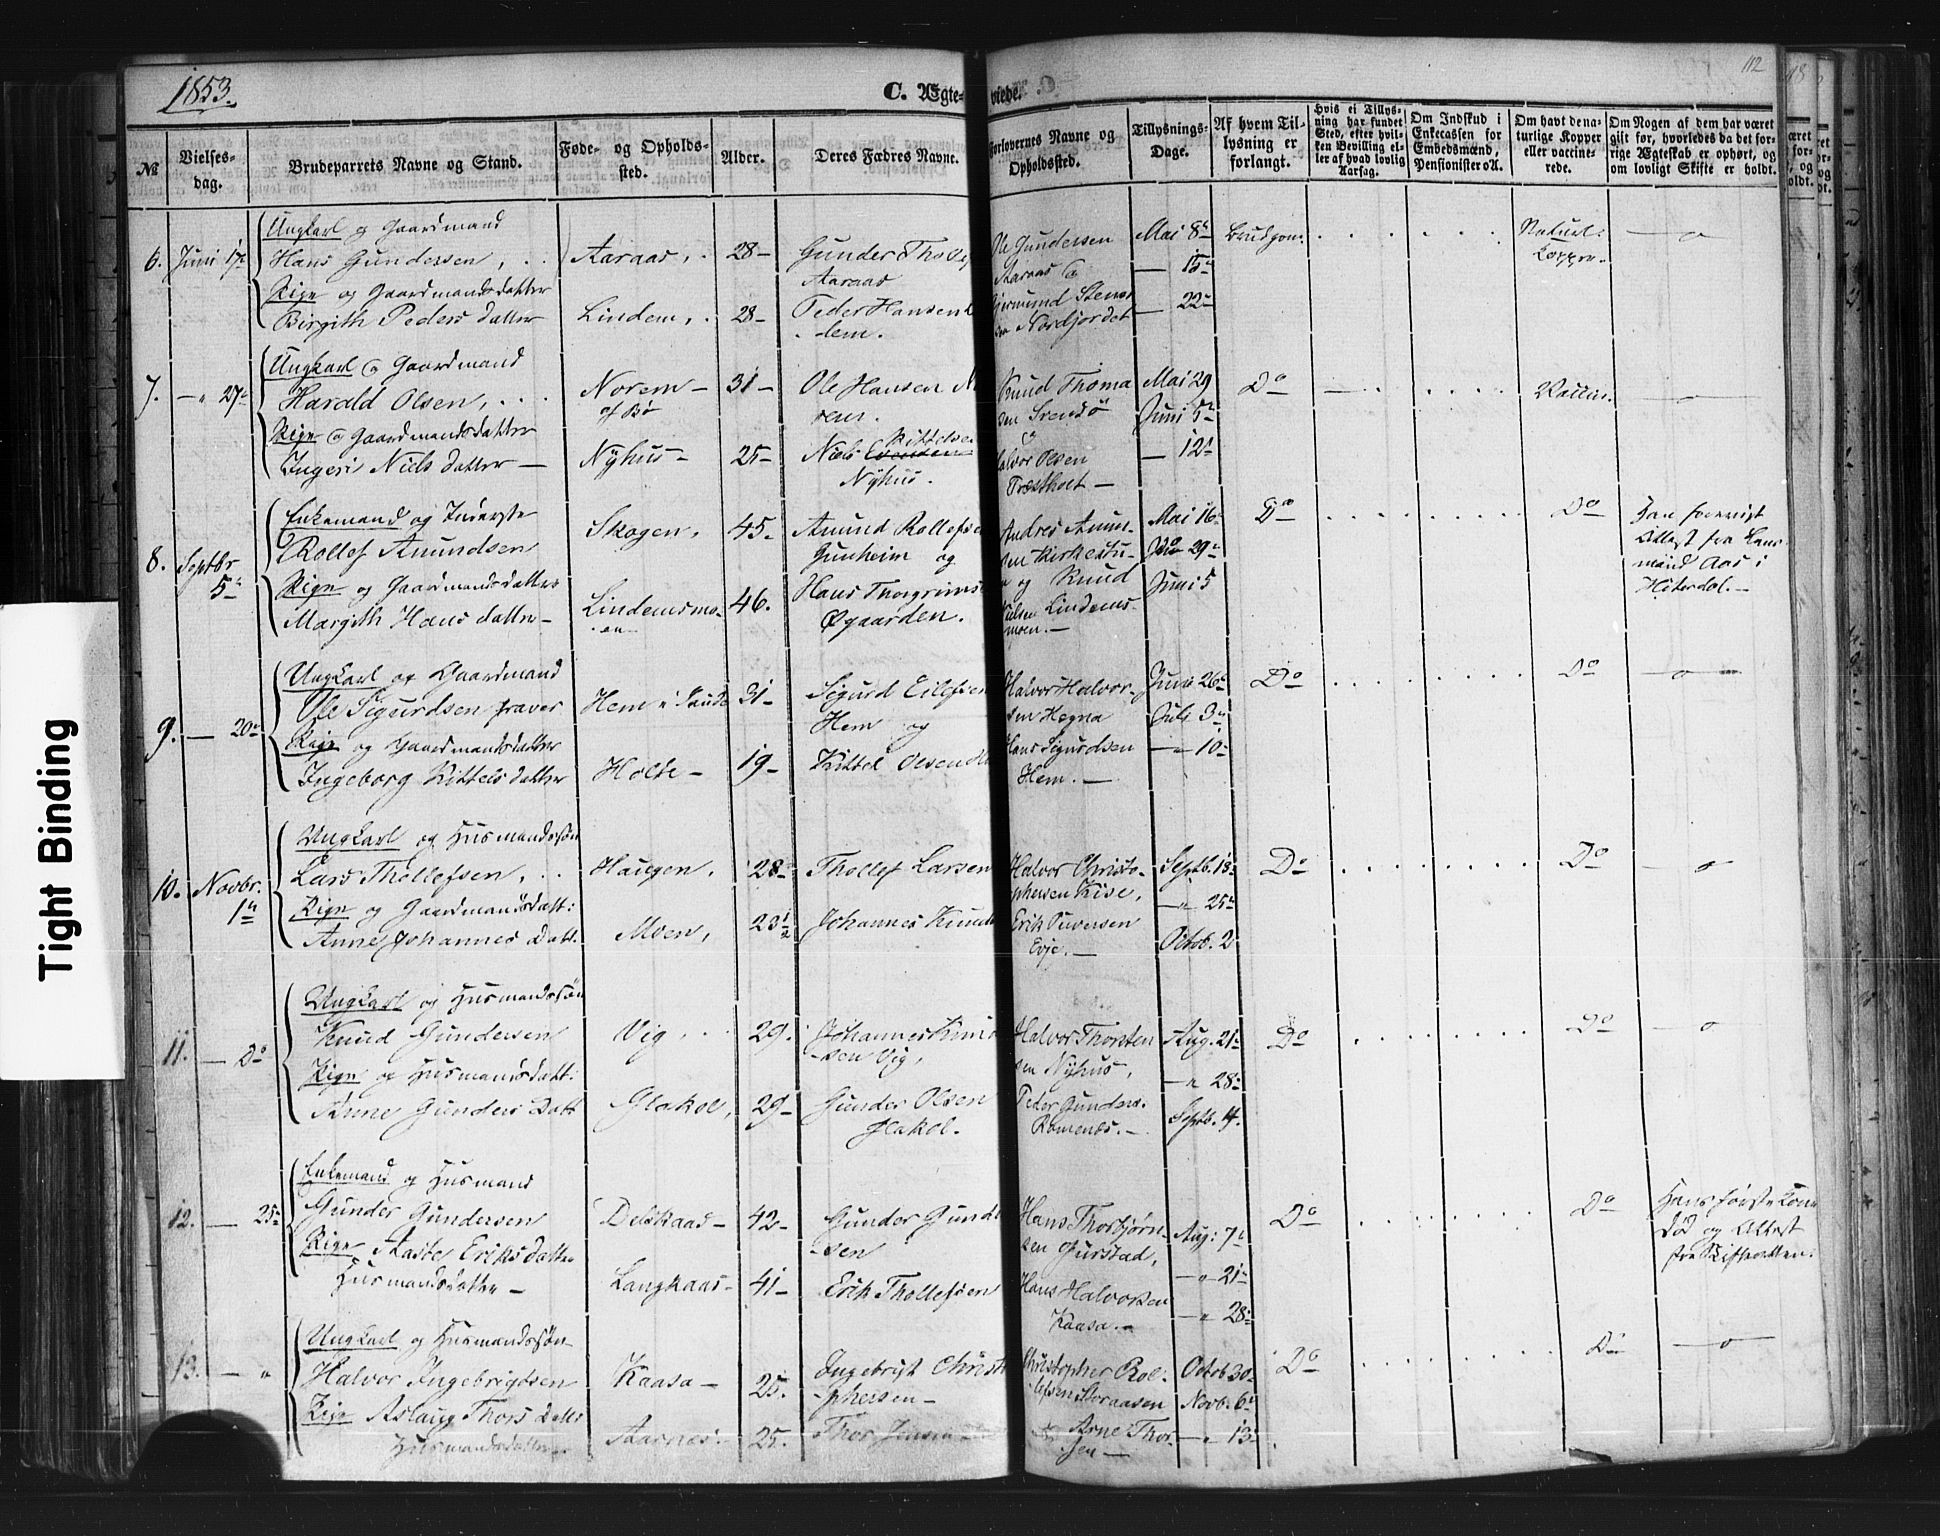 1853.
C. Ægte-
viede.
112
Tight Binding
№
Vielses-
dag.
Brudeparrets Navne og Stand.
Føde- og Opholds-
sted.
Alder.
Deres Fædres Navne.
Forlovernes Navne og
Opholdssted.
Tillysnings-
Dage.
Af hvem Til-
lysning er
forlangt.
Hvis ei Tillys-
ning har fundet
Sted, efter hvil-
ken Bevilling el-
ler af hvad lovlig
Aarsag.
Om Indskud i
Enkecassen for
Embedsmænd,
Pensionister o.A.
Om havt de na-
turlige Kopper
eller vaccine-
rede.
Om Nogen af dem har været
gift før, hvorledes da det for-
rige Ægteskab er ophørt, og
om lovligt Skifte er holdt.
6. Juni 17
Ungkarl og Gaardmand
Hans Gundersen,
Pige og Gaardmandsdatter
Birgith Peders datter
Aaraas,
Lindem,
28-
28-
Gunder
Aaraas
Peder Hansen
dem.
Ole Gundersen
Aaraas
Nordjordet
Mai 8
15
22
Brudgom.
Naturl.
Kopper.
7. 27
Ungkarl og Gaardmand
Harald Olsen,
Pige og Gaardmandsdatter
Ingeri Niels datter
Norem
af Bø
Nyhus
31-
25-
Ole Hansen
rem.
Kittelsen
Niels
Nyhus.
Knud Thoma
sen Svendsø
Halvor Olsen
Præstholt
Mai 29
Juni 5
12
Do
Vaccin.
8. Septbr
5
Enkemand og Inderste
Rollef Amundsen
Pige og Gaardmandsdatter
Margith Hans datter
Skogen,
Lindemsmo-
en
45-
46.
Amund Rollefsen
Gunheim og
Hans Thorgrimsen
Øgaarden.
Andres Amun-
sen Kirkestu-
og Knud
Nielsen Lindems-
moen.
Mai 16
Do 29
Juni 5
Do
Do
Han fremvist
Attest fra Lens
mand Aas i
Hiterdal.
9. 20
Ungkarl og Gaardmand
Ole Sigurdsen
Pige og Gaardmandsdatter
Ingeborg Kittels datter
Hem i Saude
Holte
31-
19-
Sigurd Eilefsen
Hem og
Kittel Olsen
Halvor Halvor-
sen Hegna
Hans Sigurdsen
Hem.
Juni 26
Juli 3
10
Do
Do
10. Novbr.
1
Ungkarl og Husmandssøn
Lars Thollefsen,
Pige og Gaardmandsdatt:
Anne Johannes Datt.
Haugen,
Moen,
28
23½
Thollef Larsen
Johannes Knud
Halvor Christo-
phersen Kise,
Erik Siversen
Evje.
Septb. 18
25
Octob. 2
Do
Do
11. Do
Ungkarl og Husmandssøn
Knud Gundersen
Pige og Husmandsdatt:
Anne Gunders Datt
Vig,
Glakol,
29.
29-
Johannes Knud
sen Vig,
Gunder Olsen
Glakol.
Halvor Thorsten
sen Nyhus,
Peder Gunders.
Romenæs.
Aug. 21
28
Septb. 4.
Do
Do
12. 25
Enkemand og Husmand
Gunder Gundersen
Pige Aaste Eriks datter
Husmandsdatter
Delskaas
Langkaas
42-
41-
Gunder Gund
sen
Erik Thollefsen
Hans Thorbjørn-
sen Gurstad,
Hans Halvorsen
Kaasa.
Aug: 7
21
28
Do
Do
Hans første Kone
død og Attest
fra Skifteretten.
13.
Ungkarl og Husmandssøn
Halvor Ingebrigtsen
Pige Aslaug Thors Datt
Husmandsdatter
Kaasa
Aarnes.
25.
25.
Ingebrigt Christ
phersen
Thor Jensen
Christopher Rol-
lefsen Storaasen
Arne Thor-
sen
Octob 30
Novb. 6
13
Do
Do